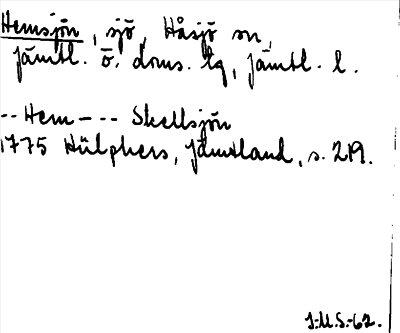 Hemsjön, sjö, Håsjö sn,
Jämtl. ö. doms. tg, Jämtl. l.
--Hem--- Skellsjön
1775 Hülphers, Jämtland, s. 219.
J.M.S.-62.